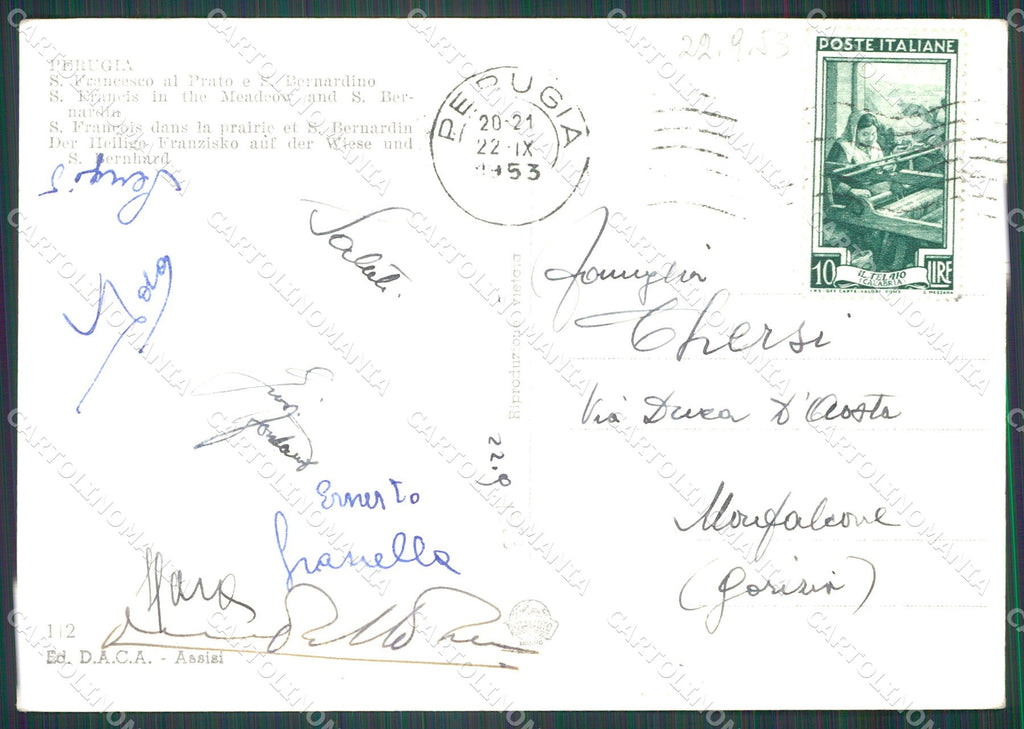 22.9.53
PERUGIA
S. Francesco al Prato e S. Bernardino
S. Francis in the Meadcow and S. Ber-
nardin
S. François dans la prairie et S. Bernardin
Der Heilige Franzisko auf der Wiese und
S. Bernhard
PERUGIA
20-21
22·IX
1953
POSTE ITALIANE
10 LIRE
IL TELAIO
(CALABRIA)
Saluti
Ernesto
Granella
Mara
22.9
Riproduzione Vietata
famiglia
Chersi
Via Duca D'Aosta
Monfalcone
(Gorizia)
112
Ed. D.A.C.A. - Assisi
CARTOLINOMANIA